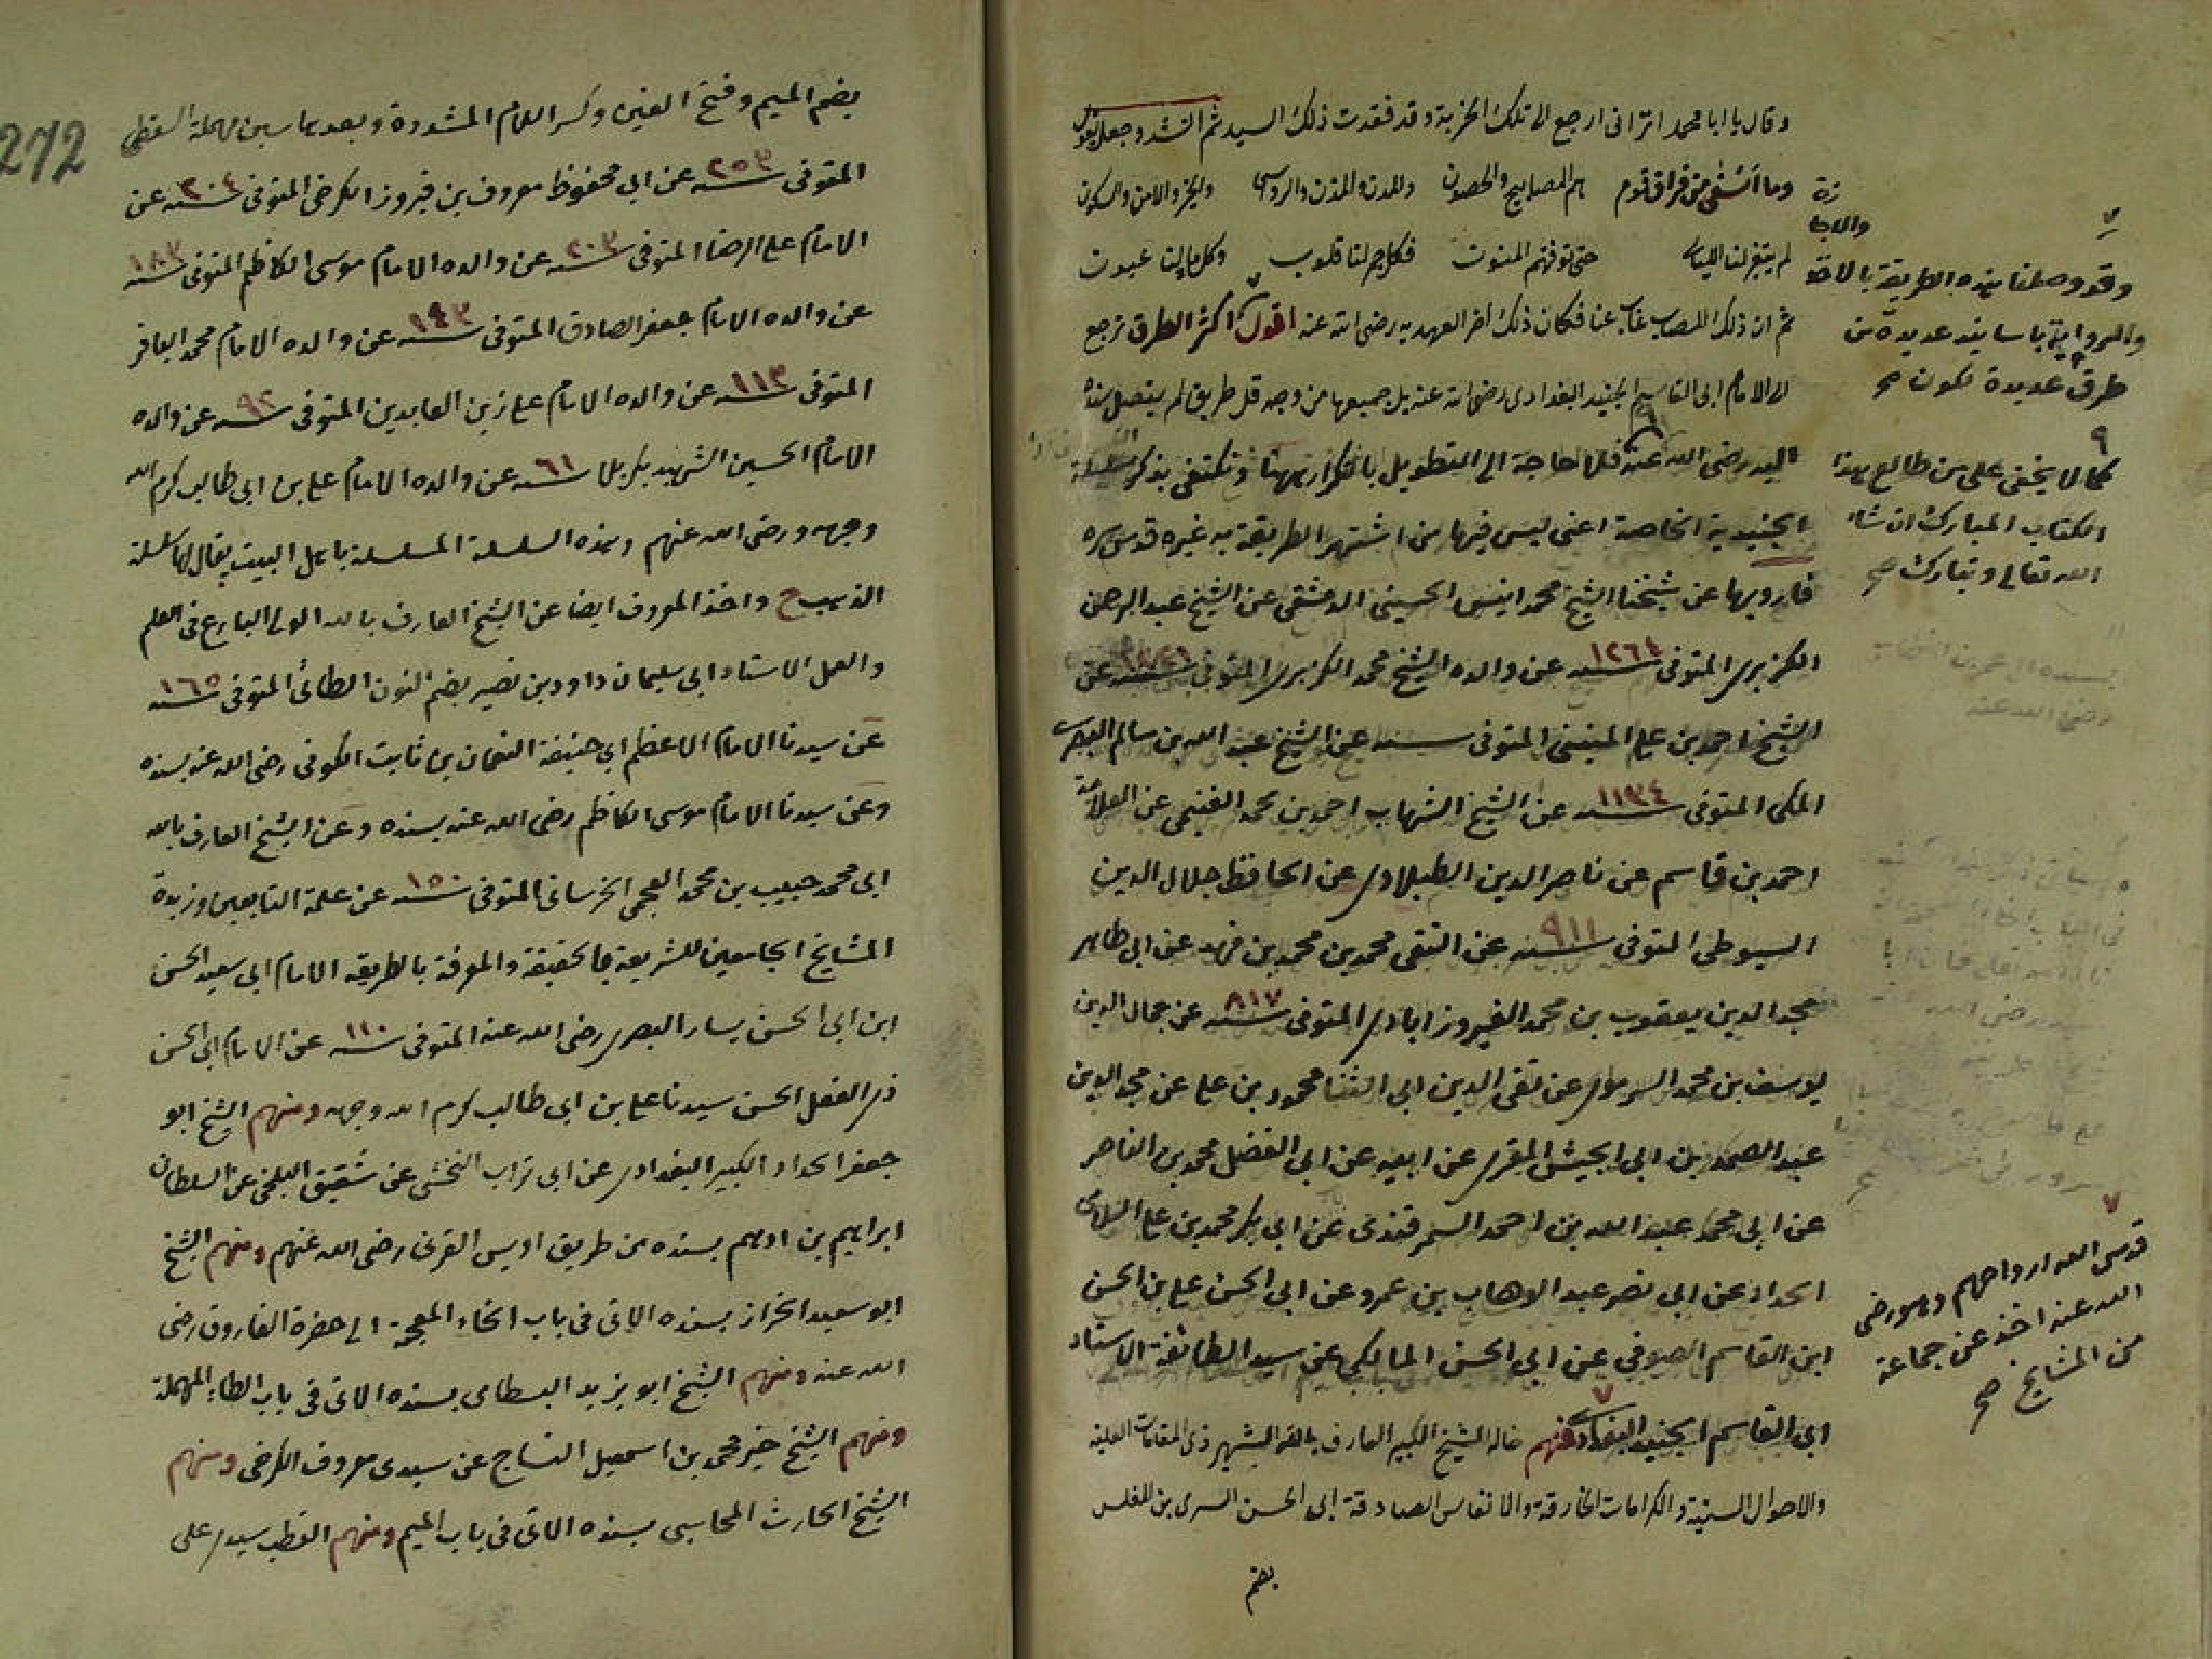 وقال يا ابا محمد اترانى ارجع الى تلك الخربة وقد فقدت ذلك السيد ثم انشد وجعل يقول
وما أشقى من فراق قوم هم المصابيح والحصون والمدن والمزن والرواسى والخير والامن والسكون
لم يتغير لنا الليالى حتى توفتهم المنون فكل جمر لنا قلوب وكل ماء لنا عيون
ثم ان ذلك الشاب غاب عنا فكان ذلك اخر العهد به رضى الله عنه اقول اكثر الطرق ترجع
الى الامام ابى القاسم الجنيد البغدادى رضى الله عنه بل جميعها من وجه قل طريق لم يتصل سنده
اليه رضى الله عنه فلا حاجة الى التطويل بالتكرار ههنا ونكتفى بذكر سلسلة
الجنيدية الخاصة اعنى ليس فيها من اشتهر الطريقة به غيره قدس سره
فارويها عن شيخنا الشيخ محمد انيس الحسينى الدمشقى عن الشيخ عبد الرحمن
الكزبرى المتوفى سنه ١٢٦٤ عن والده الشيخ محمد الكزبرى المتوفى سنه ١٢٢١ عن
الشيخ احمد بن على المنينى المتوفى سنه عن الشيخ عبد الله بن سالم البصرى
المكى المتوفى سنه ١١٣٤ عن الشيخ الشهاب احمد بن محمد الغنيمى عن العلامة
احمد بن قاسم عن ناصر الدين الطبلاوى عن الحافظ جلال الدين
السيوطى المتوفى سنه ٩١١ عن التقى محمد بن محمد بن فهد عن ابى طاهر
مجد الدين يعقوب بن محمد الفيروزابادى المتوفى سنه ٨١٧ عن جمال الدين
يوسف بن محمد السرمرى عن تقى الدين ابى الثنا محمود بن على عن مجد الدين
عبد الصمد بن ابى الجيش المقرى عن ابيه عن ابى الفضل محمد بن الناصر
عن ابى محمد عبد الله بن احمد السمرقندى عن ابى بكر محمد بن على
الحداد عن ابى نصر عبد الوهاب بن عمرو عن ابى الحسن على بن الحسن
ابن القاسم الصوفى عن ابى الحسن المالكى عن سيد الطائفة الاستاد
ابى القاسم الجنيد البغدادى فمنهم خاله الشيخ الكبير العارف بالله الشهير ذى المقامات العلية
والاحوال السنية والكرامات الخارقة والانفاس الصادقة ابى الحسن السرى بن المغلس
بضم
وقد وصلنا هذه الطريقة بالاخا
زة
والاجا
والرواية باسانيد عديدة من
طرق عديدة تكون صح
كما لا يخفى على من طالع هذا
الكتاب المبارك ان شاء
الله تعالى وتبارك صح
قدس الله ارواحهم وهو رضى
الله عنه اخذ عن جماعة
من المشايخ صح
272
بضم الميم وفتح الغين وكسر اللام المشددة وبعدها سين مهملة السقطى
المتوفى سنه ٢٥٣ عن ابى محفوظ معروف بن فيروز الكرخى المتوفى سنه ٢٠٤ عن
الامام على الرضا المتوفى سنه ٢٠٣ عن والده الامام موسى الكاظم المتوفى سنه ١٨٣
عن والده الامام جعفر الصادق المتوفى سنه ١٤٣ عن والده الامام محمد الباقر
المتوفى سنه ١١٣ عن والده الامام على زين العابدين المتوفى سنه ٩٢ عن والده
الامام الحسين الشهيد بكربلا سنه ٦١ عن والده الامام على بن ابى طالب كرم الله
وجهه ورضى الله عنهم وهذه السلسلة المسلسلة باهل البيت يقال لها سلسلة
الذهب ح واخذ المعروف ايضا عن الشيخ العارف بالله الولى البارع فى العلم
والعمل الاستاد ابى سليمان داود بن نصير بضم النون الطائى المتوفى سنه ١٦٥
عن سيدنا الامام الاعظم ابى حنيفة النعمان بن ثابت الكوفى رضى الله عنه بسنده
وعن سيدنا الامام موسى الكاظم رضى الله عنه بسنده وعن الشيخ العارف بالله
ابى محمد حبيب بن محمد العجمى الخرسانى المتوفى سنه ١٥٠ عن علمة التابعين وزبدة
المشايخ الجامعين للشريعة والحقيقة والمعرفة بالطريقه الامام ابى سعيد الحسن
ابن ابى الحسن يسار البصرى رضى الله عنه المتوفى سنه ١١٠ عن الامام ابى الحسن
ذى الفعل الحسن سيدنا على بن ابى طالب كرم الله وجهه ومنهم الشيخ ابو
جعفر الحداد الكبير البغدادى عن ابى تراب النخشبى عن شقيق البلخى عن السلطان
ابراهيم بن ادهم بسنده من طريق اويس القرنى رضى الله عنهم ومنهم الشيخ
ابو سعيد الخراز بسنده الاتى فى باب الخاء المعجمة الى حضرة الفاروق رضى
الله عنه ومنهم الشيخ ابو يزيد البسطامى بسنده الاتى فى باب الطاء المهملة
ومنهم الشيخ خير محمد بن اسمعيل النساج عن سيدى معروف الكرخى ومنهم
الشيخ الحارث المحاسبى بسنده الاتى فى باب الميم ومنهم القطب سيدى على